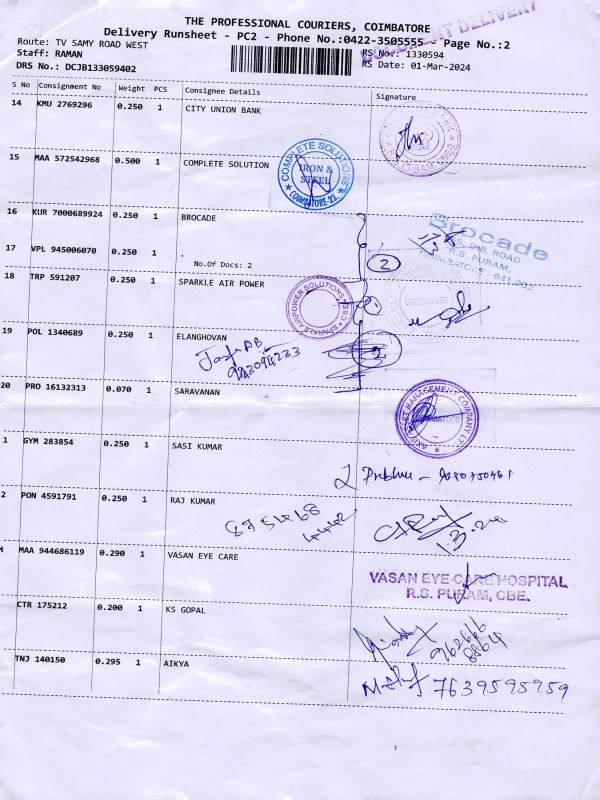 THE PROFESSIONAL COURIERS, COIMBATORE
Delivery Runsheet - PC2 - Phone No.:0422-3505555 - Page No.:2
DELIVERY
Route: TV SAMY ROAD WEST
RS No.: 1330594
Staff: RAMAN
RS Date: 01-Mar-2024
DRS No.: DCJB133059402
S No Consignment No Weight PCS Consignee Details Signature
14 KMU 2769296 0.250 1 CITY UNION BANK
15 MAA 572542968 0.500 1 COMPLETE SOLUTION
COMPLETE SOLUTIONS
IRON &
STEEL
COIMBATORE-23.
16 KUR 7000689924 0.250 1 BROCADE
Brocade
D.B. ROAD,
R.S. PURAM,
17 VPL 945006070 0.250 1
No.Of Docs: 2
2
18 TRP 591207 0.250 1 SPARKLE AIR POWER
SPARKLE AIRPOWER SOLUTIONS CBE
COIMBATORE
19 POL 1340689 0.250 1 ELANGHOVAN
20 PRO 16132313 0.070 1 SARAVANAN
ASSET MANAGEMENT COMPANY
1 GYM 283854 0.250 1 SASI KUMAR
Prabhu -
2 PON 4591791 0.250 1 RAJ KUMAR
875468
4442
1.3.24
MAA 944686119 0.290 1 VASAN EYE CARE
VASAN EYE CARE HOSPITAL
R.S. PURAM, CBE.
CTR 175212 0.200 1 KS GOPAL
TNJ 140150 0.295 1 AIKYA
7639595959